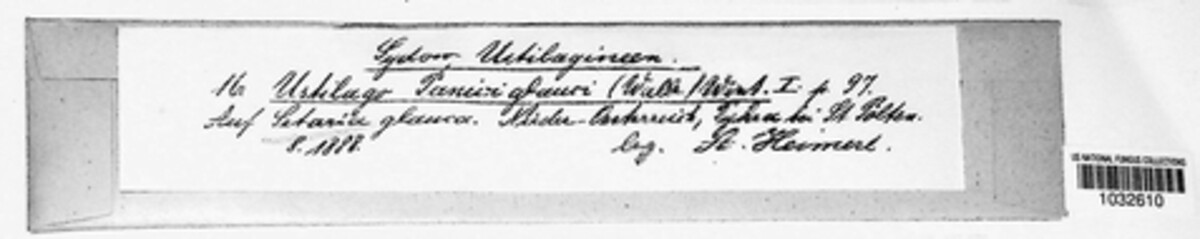 Sydow, Ustilagineen.
16 Ustilago Panici glauci (Wallr) Wint. I. p 97.
Auf Setaria glauca. Nieder-Österreich, Pyhra bei St Pölten.
8. 1888. leg. A. Heimerl.
US NATIONAL FUNGUS COLLECTIONS
1032610